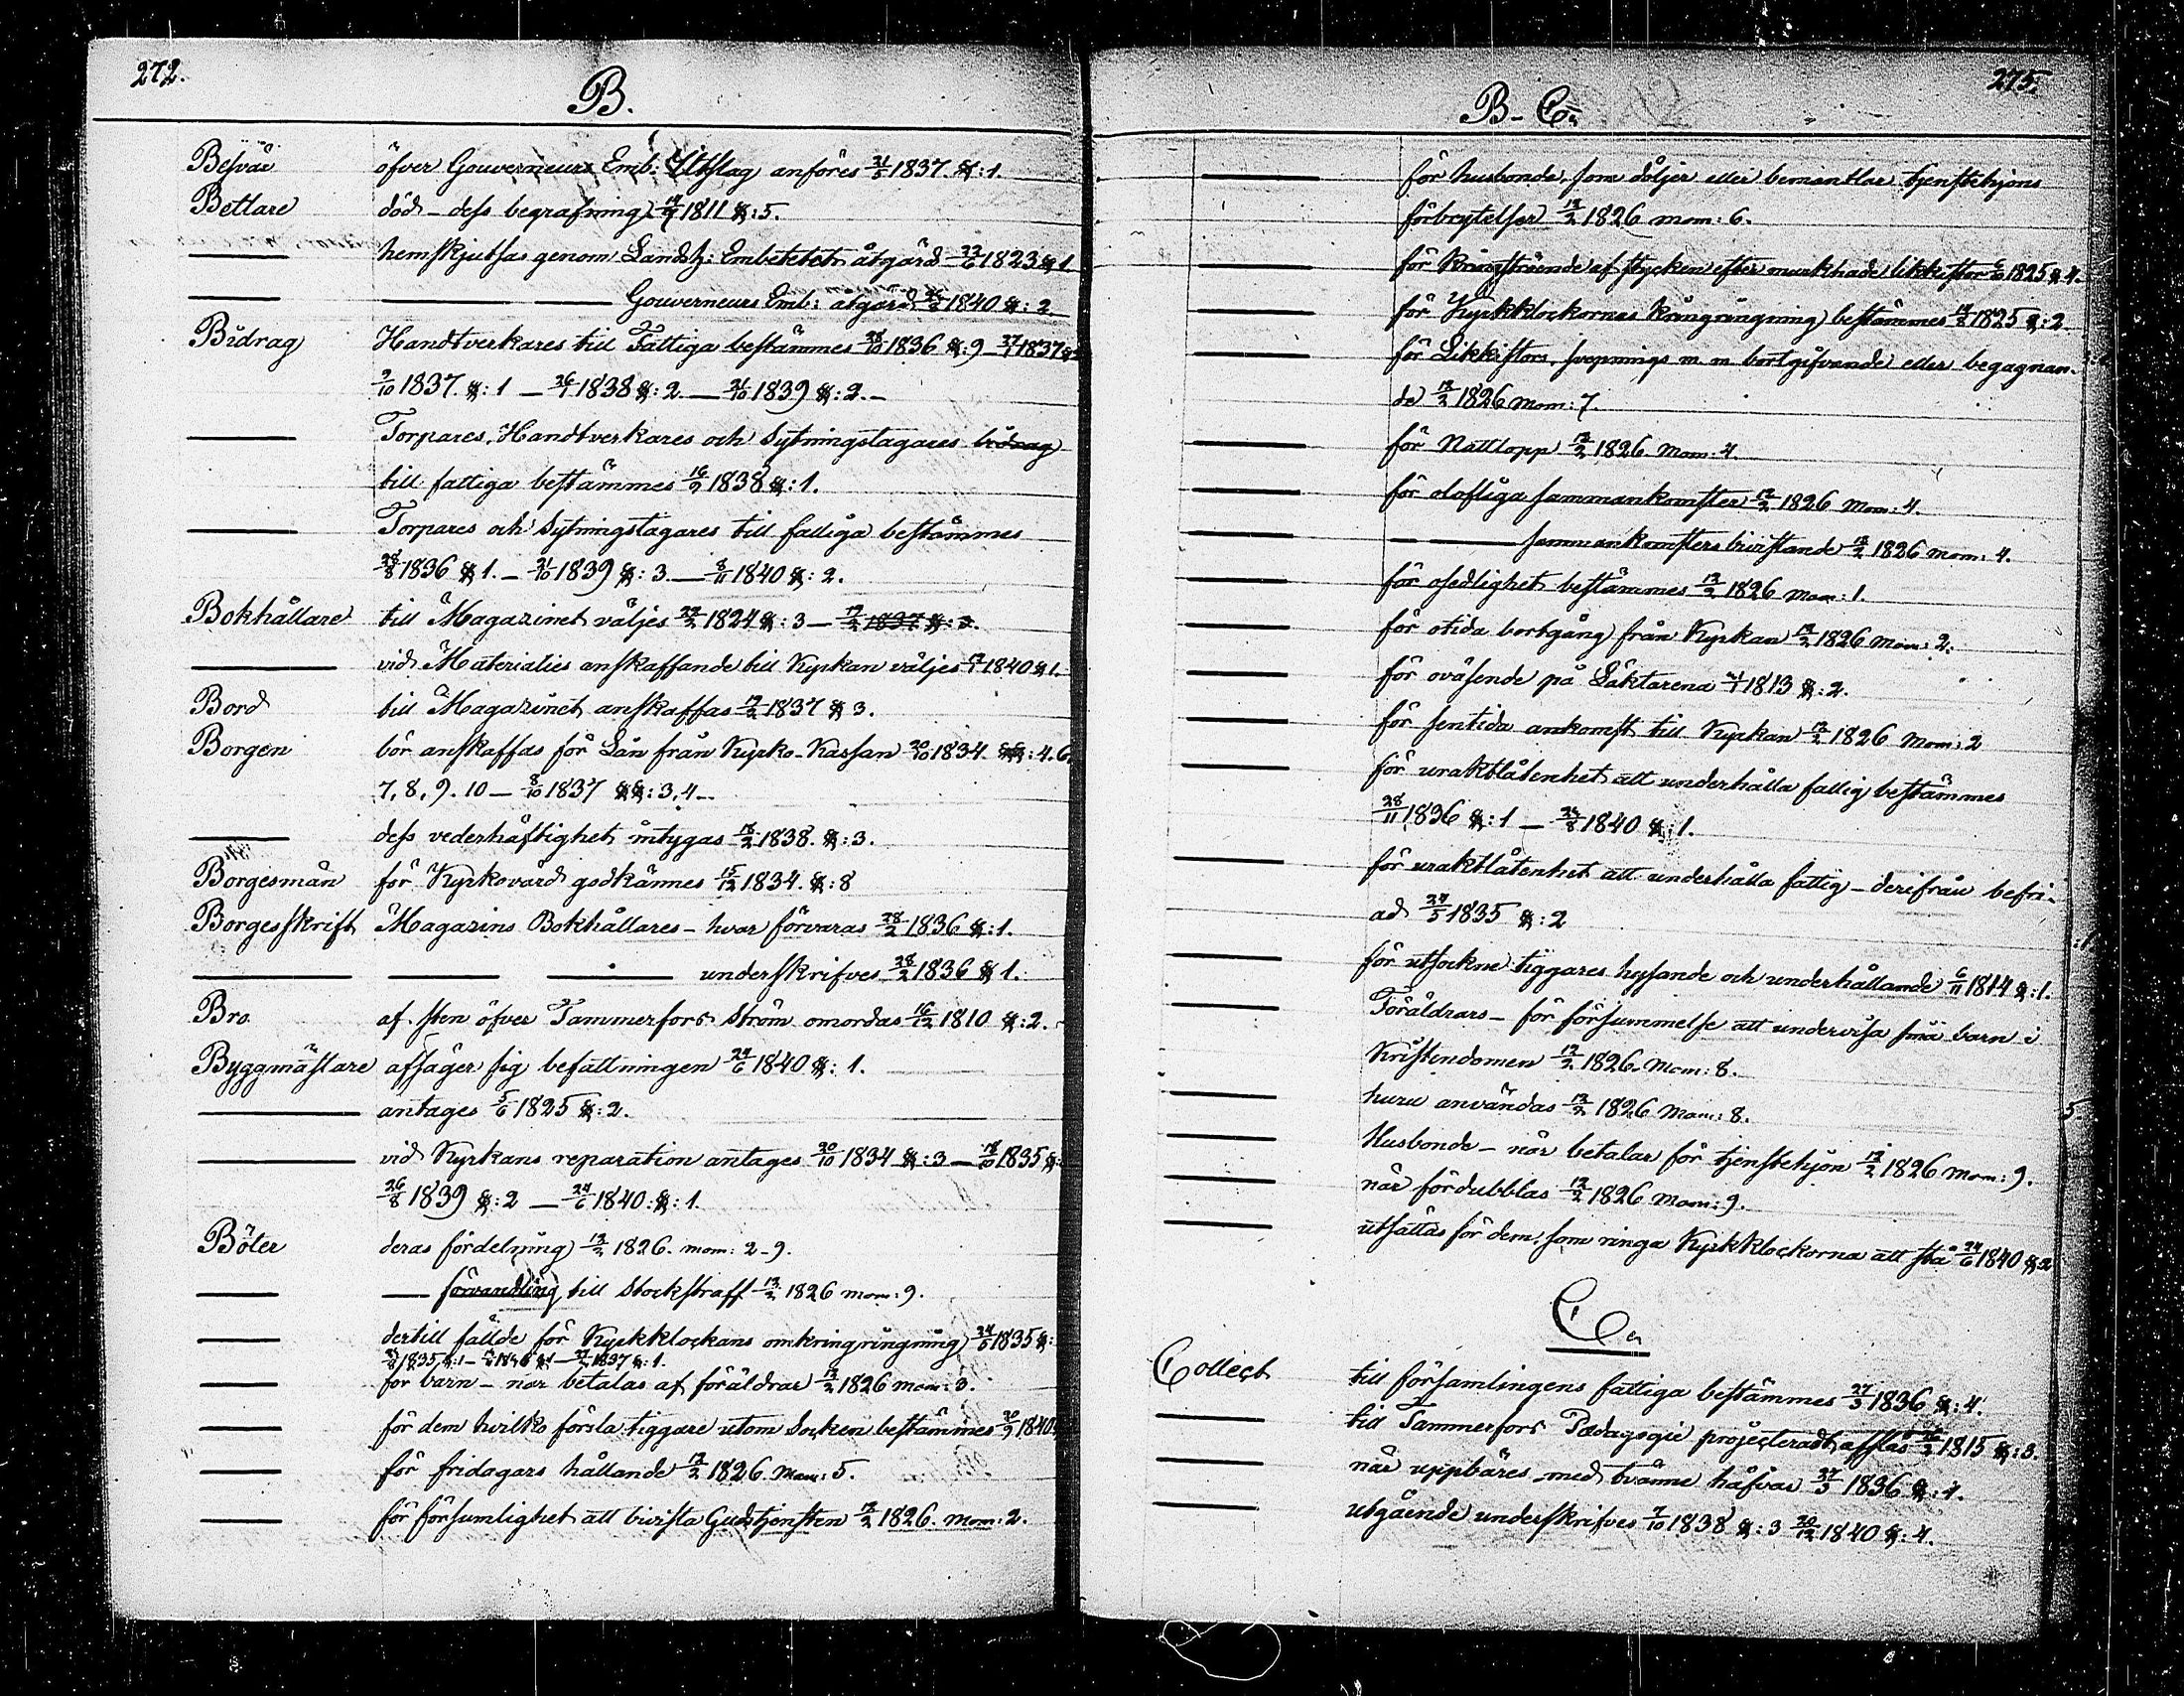 272.
B.
Besvär öfver Gouverneurs Emb: Utslag anföres 21/5 1837. §:1.
Bettare död - dess begrafning 1811 §:5.
——— hemskjutsas genom Landsh: Embetetets åtgärd 22/6 1823 § 1.
——— ——— ——— Gouverneurs Emb: åtgärd 1840 §: 2.
Bidrag Handtverkares till Fattiga bestämmes 28/10 1836 §: 9 - 27/1 1837
2/10 1837. §: 1 — 26/1 1838 §: 2. — 21/10 1839 §: 2. -
——— Torpares, Handtverkares och Sytningstagares bidrag
till fattiga bestämmes 16/9 1838 §: 1.
——— Torpares och Sytningstagares till fattiga bestämmes
28/8 1836 § 1. - 21/10 1839 §: 3. — 8/11 1840 §: 2.
Bokhållare till Magazinet väljes 22/2 1824 §: 3 — 19/2 1837 §: 3.
——— vid Materialies anskaffande till Kyrkan väljes 1840 § 1.
Bord till Magazinet anskaffas 19/2 1837 § 3.
Borgen bör anskaffas för Lån från Kyrko-Kassan 20/10 1834. §§: 4. 6.
7, 8, 9. 10 — 8/10 1837 §§: 3, 4 -
——— dess vederhäftighet intygas 18/2 1838. §: 3.
Borgesmän för Kyrkovärd godkännes 15/12 1834. §: 8
Borgesskrift Magazins Bokhållares - hvar förvaras 28/2 1836 §: 1.
——— ——— ——— underskrifves 28/2 1836 § 1.
Bro af sten öfver Tammerfors Ström omordas 16/12 1810 §: 2.
Byggmästare afsäger sig befattningen 24/6 1840 §: 1.
——— antages 5/6 1825 §: 2.
——— vid Kyrkans reparation antages 20/10 1834 §: 3 — 18/10 1835 §:
26/8 1839 §: 2 — 24/6 1840. §: 1.
Böter deras fördelning 12/2 1826. mom: 2-9.
——— — förvandling till Stockstraff 12/2 1826 mom: 9.
——— dertill fällde för Kyrkklockans omkringringning 24/5 1835 §:
1835 §: 1 - 1837 §: 1.
——— för barn - när betalas af föräldrar 12/2 1826 mom: 3.
——— för dem hvilka försla tiggare utom Socken bestämmes 20/9 1840
——— för fridagars hållande 12/2 1826. Mom: 5.
——— för försumlighet att bivista Gudstjensten 12/2 1826. mom: 2.
275.
B- C.
——— för husbonde, som döljer eller bemantlar tjenstehjons
förbrytelser 12/2 1826 mom: 6.
——— för Kringströende af stycken efter murknade likkistor 1825 § 4.
——— för Kyrkklockornas kringringning bestämmes 1825 §: 2
——— för Likkistors, svepnings m. m. bortgifvande eller begagnan-
de 12/2 1826 Mom: 7.
——— för Nattlopp 12/2 1826. Mom: 4.
——— för olofliga sammankomster 12/2 1826 Mom: 4.
——— — ——— sammankomsters bivistande 12/2 1826 mom: 4.
——— för osedlighet bestämmes 12/2 1826 Mom: 1.
——— för otida bortgång från Kyrkan 12/2 1826 Mom: 2.
——— för oväsende på Läktarena 1813 §: 2.
——— för sentida ankomst till Kyrkan 12/2 1826 Mom: 2
——— för uraktlåtenhet att underhålla fattig bestämmes
28/11 1836 §: 1 — 24/8 1840 §: 1.
——— för uraktlåtenhet att underhålla fattig - derifrån befri-
ad 24/5 1835 §: 2
——— för utsockne tiggares hysande och underhållande 6/11 1814 §: 1.
——— Föräldrars - för försummelse att undervisa små barn i
Kristendomen 12/2 1826. Mom: 8.
——— huru användas 12/2 1826 Mom: 8.
——— Husbonde - när betalar för tjenstehjon 12/2 1826 Mom: 9.
——— när fördubblas 12/2 1826 Mom: 9.
——— utsättas för dem, som ringa Kyrkklockorna att stå 24/6 1840 § 2
C.
Collect till församlingens fattiga bestämmes 27/3 1836 §: 4.
——— till Tammerfors Pædagogie projecteradt, afslås 1815 §: 3.
——— när uppbäres med tvänne håfvar 27/3 1836 §: 4.
——— utgående underskrifves 7/10 1838 §: 3 20/12 1840 §: 4.